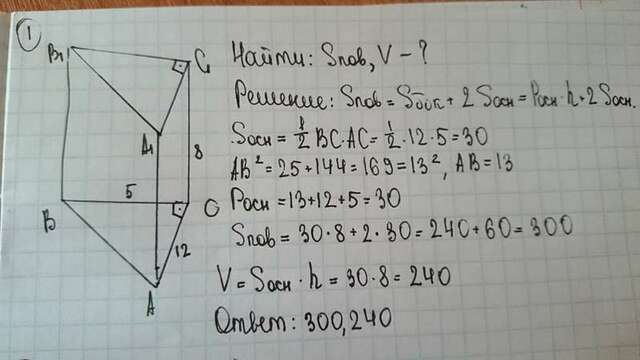 1
B1
C1
A1
8
5
B
C
12
A
Найти: Sпов, V - ?
Решение: Sпов = Sбок + 2 Sосн = Pосн · h + 2 Sосн.
Sосн = 1/2 BC·AC = 1/2 · 12 · 5 = 30
AB² = 25 + 144 = 169 = 13², AB = 13
Pосн = 13 + 12 + 5 = 30
Sпов = 30 · 8 + 2 · 30 = 240 + 60 = 300
V = Sосн · h = 30 · 8 = 240
Ответ: 300, 240